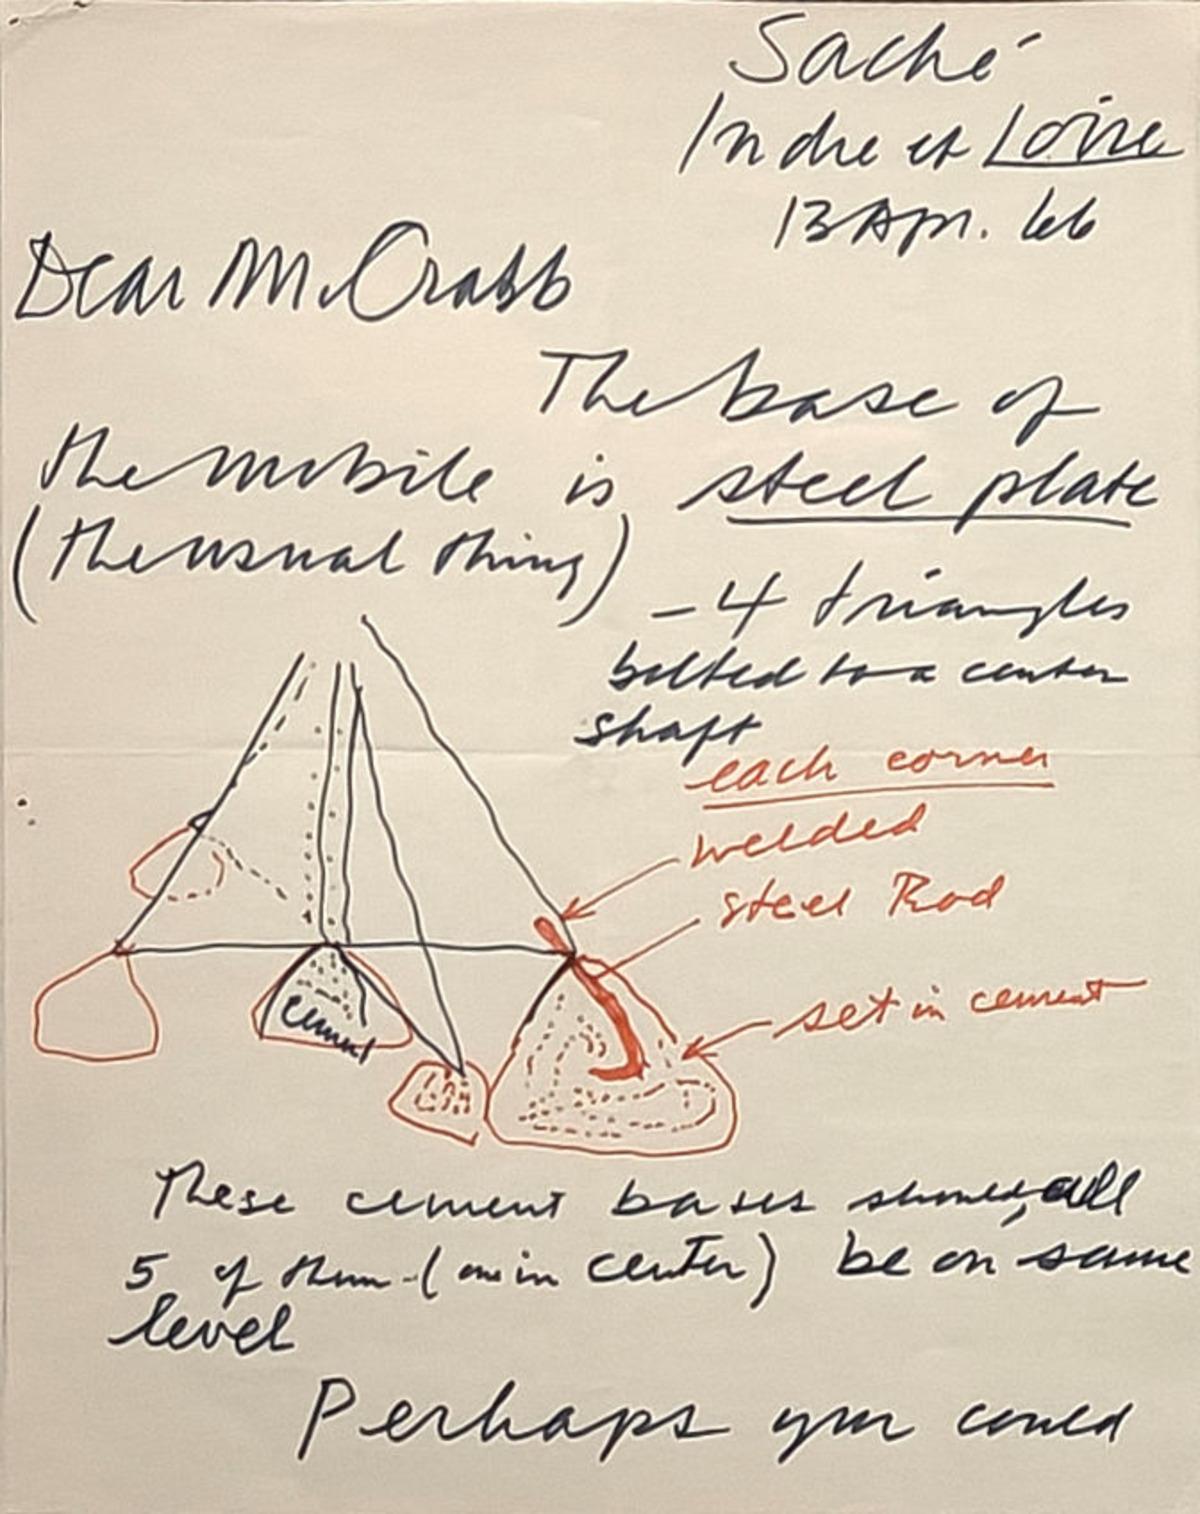 Saché
Indre et Loire
13 Apr. 66
Dear McCrabb
The base of
the mobile is steel plate
(the usual thing)
- 4 triangles
bolted to a center
shaft
each corner
welded
steel Rod
set in cement
cement
These cement bases should, all
5 of them - (one in center) be on same
level
Perhaps you could